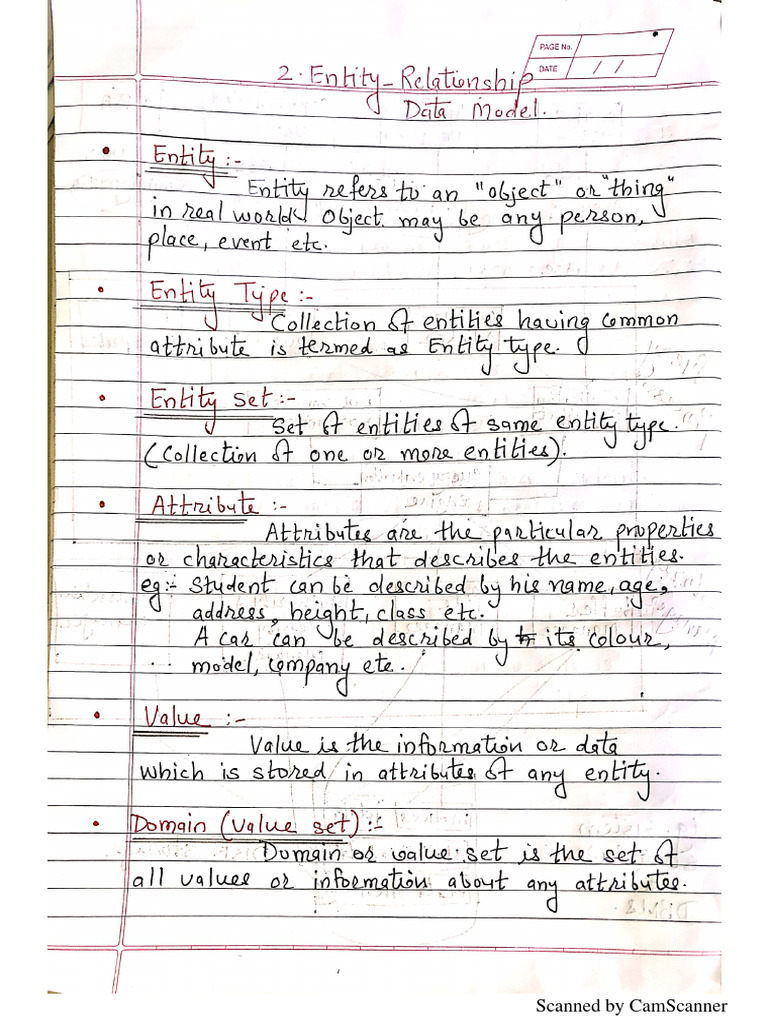 PAGE No.
DATE / /
2. Entity-Relationship
Data Model.
• Entity :-
Entity refers to an "object" or "thing"
in real world. Object may be any person,
place, event etc.
• Entity Type :-
Collection of entities having common
attribute is termed as Entity type.
• Entity set :-
Set of entities of same entity type.
(Collection of one or more entities).
• Attribute :-
Attributes are the particular properties
or characteristics that describes the entities.
eg:- Student can be described by his name, age,
address, height, class etc.
A car can be described by its colour,
model, company etc.
• Value :-
Value is the information or data
which is stored in attributes of any entity.
• Domain (Value set) :-
Domain or value set is the set of
all values or information about any attributes.
Scanned by CamScanner